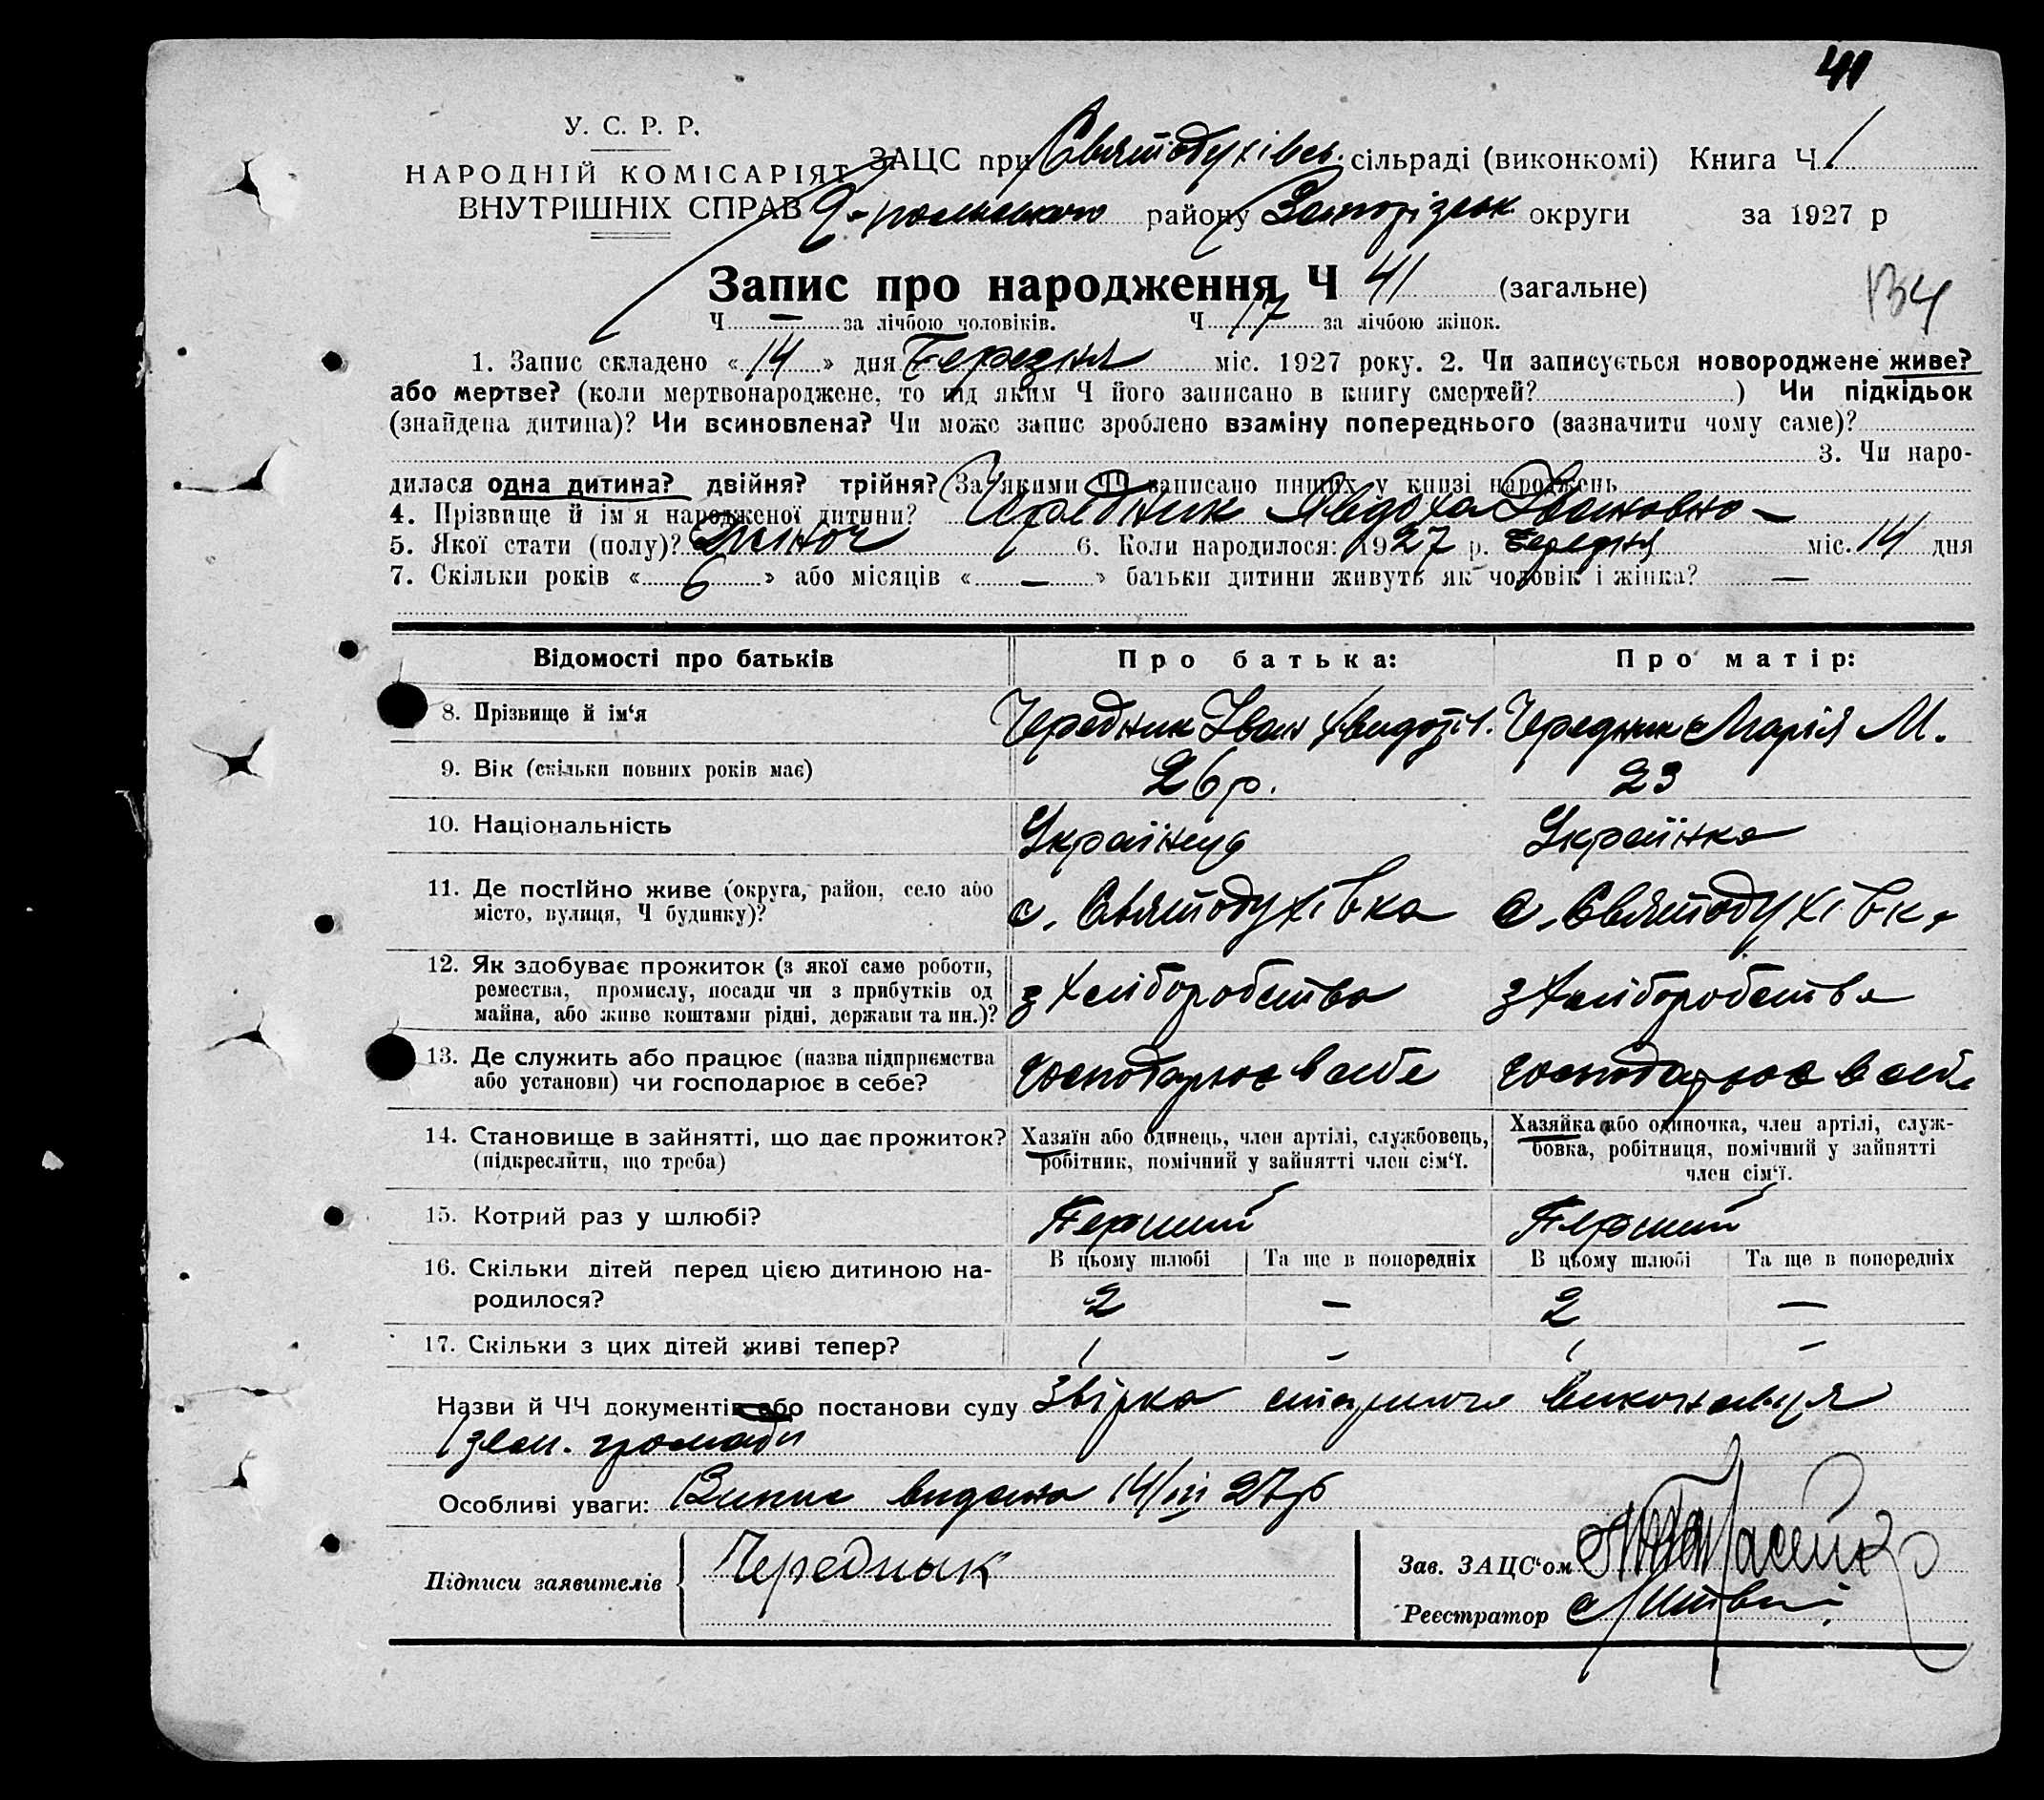 41
У. С. Р. Р.
НАРОДНІЙ КОМІСАРІЯТ
ВНУТРІШНІХ СПРАВ
ЗАЦС при Святодухівсь. сільраді (виконкомі) Книга Ч 1
району Запорізьк округи за 1927 р
134
Запис про народження Ч 41 (загальне)
Ч — за лічбою чоловіків. Ч 17 за лічбою жінок.
1. Запис складено « 14 » дня Березня міс. 1927 року. 2. Чи записується новороджене живе?
або мертве? (коли мертвонароджене, то під яким Ч його записано в книгу смертей? ) Чи підкідьок
(знайдена дитина)? Чи всиновлена? Чи може запис зроблено взаміну попереднього (зазначити чому саме)?
3. Чи наро-
дилася одна дитина? двійня? трійня? (За якими ЧЧ записано инших у книзі народжень
4. Прізвище й ім'я народженої дитини? Чередник Явдоха Івановна —
5. Якої стати (полу)? Жіноч 6. Коли народилося: 1927 р. Березня міс. 14 дня
7. Скільки років « 6 » або місяців « — » батьки дитини живуть як чоловік і жінка? —
Відомості про батьків Про батька: Про матір:
8. Прізвище й ім'я Чередник Іван Чередник Марія М.
9. Вік (скільки повних років має) 26 р. 23
10. Національність Українец Українка
11. Де постійно живе (округа, район, село або
місто, вулиця, Ч будинку)? с. Святодухівка с. Святодухівка
12. Як здобуває прожиток (з якої саме роботи,
ремества, промислу, посади чи з прибутків од
майна, або живе коштами рідні, держави та ин.)? з Хліборобства з Хліборобства
13. Де служить або працює (назва підприємства
або установи) чи господарює в себе? господарює в себе господарює в себе
14. Становище в зайнятті, що дає прожиток?
(підкреслити, що треба)
Хазяїн або одинець, член артілі, службовець,
робітник, помічний у зайнятті член сім'ї.
Хазяйка або одиночка, член артілі, служ-
бовка, робітниця, помічний у зайнятті
член сім'ї.
15. Котрий раз у шлюбі? Перший Перший
16. Скільки дітей перед цією дитиною на-
родилося?
В цьому шлюбі Та ще в попередніх В цьому шлюбі Та ще в попередніх
2 — 2 —
17. Скільки з цих дітей живі тепер? 1 — 1 —
Назви й ЧЧ документів або постанови суду Звірка виконавця
зем. громади
Особливі уваги: Випис видана 14/III 27 р
Підписи заявителів Череднык
Зав. ЗАЦС'ом
Реєстратор